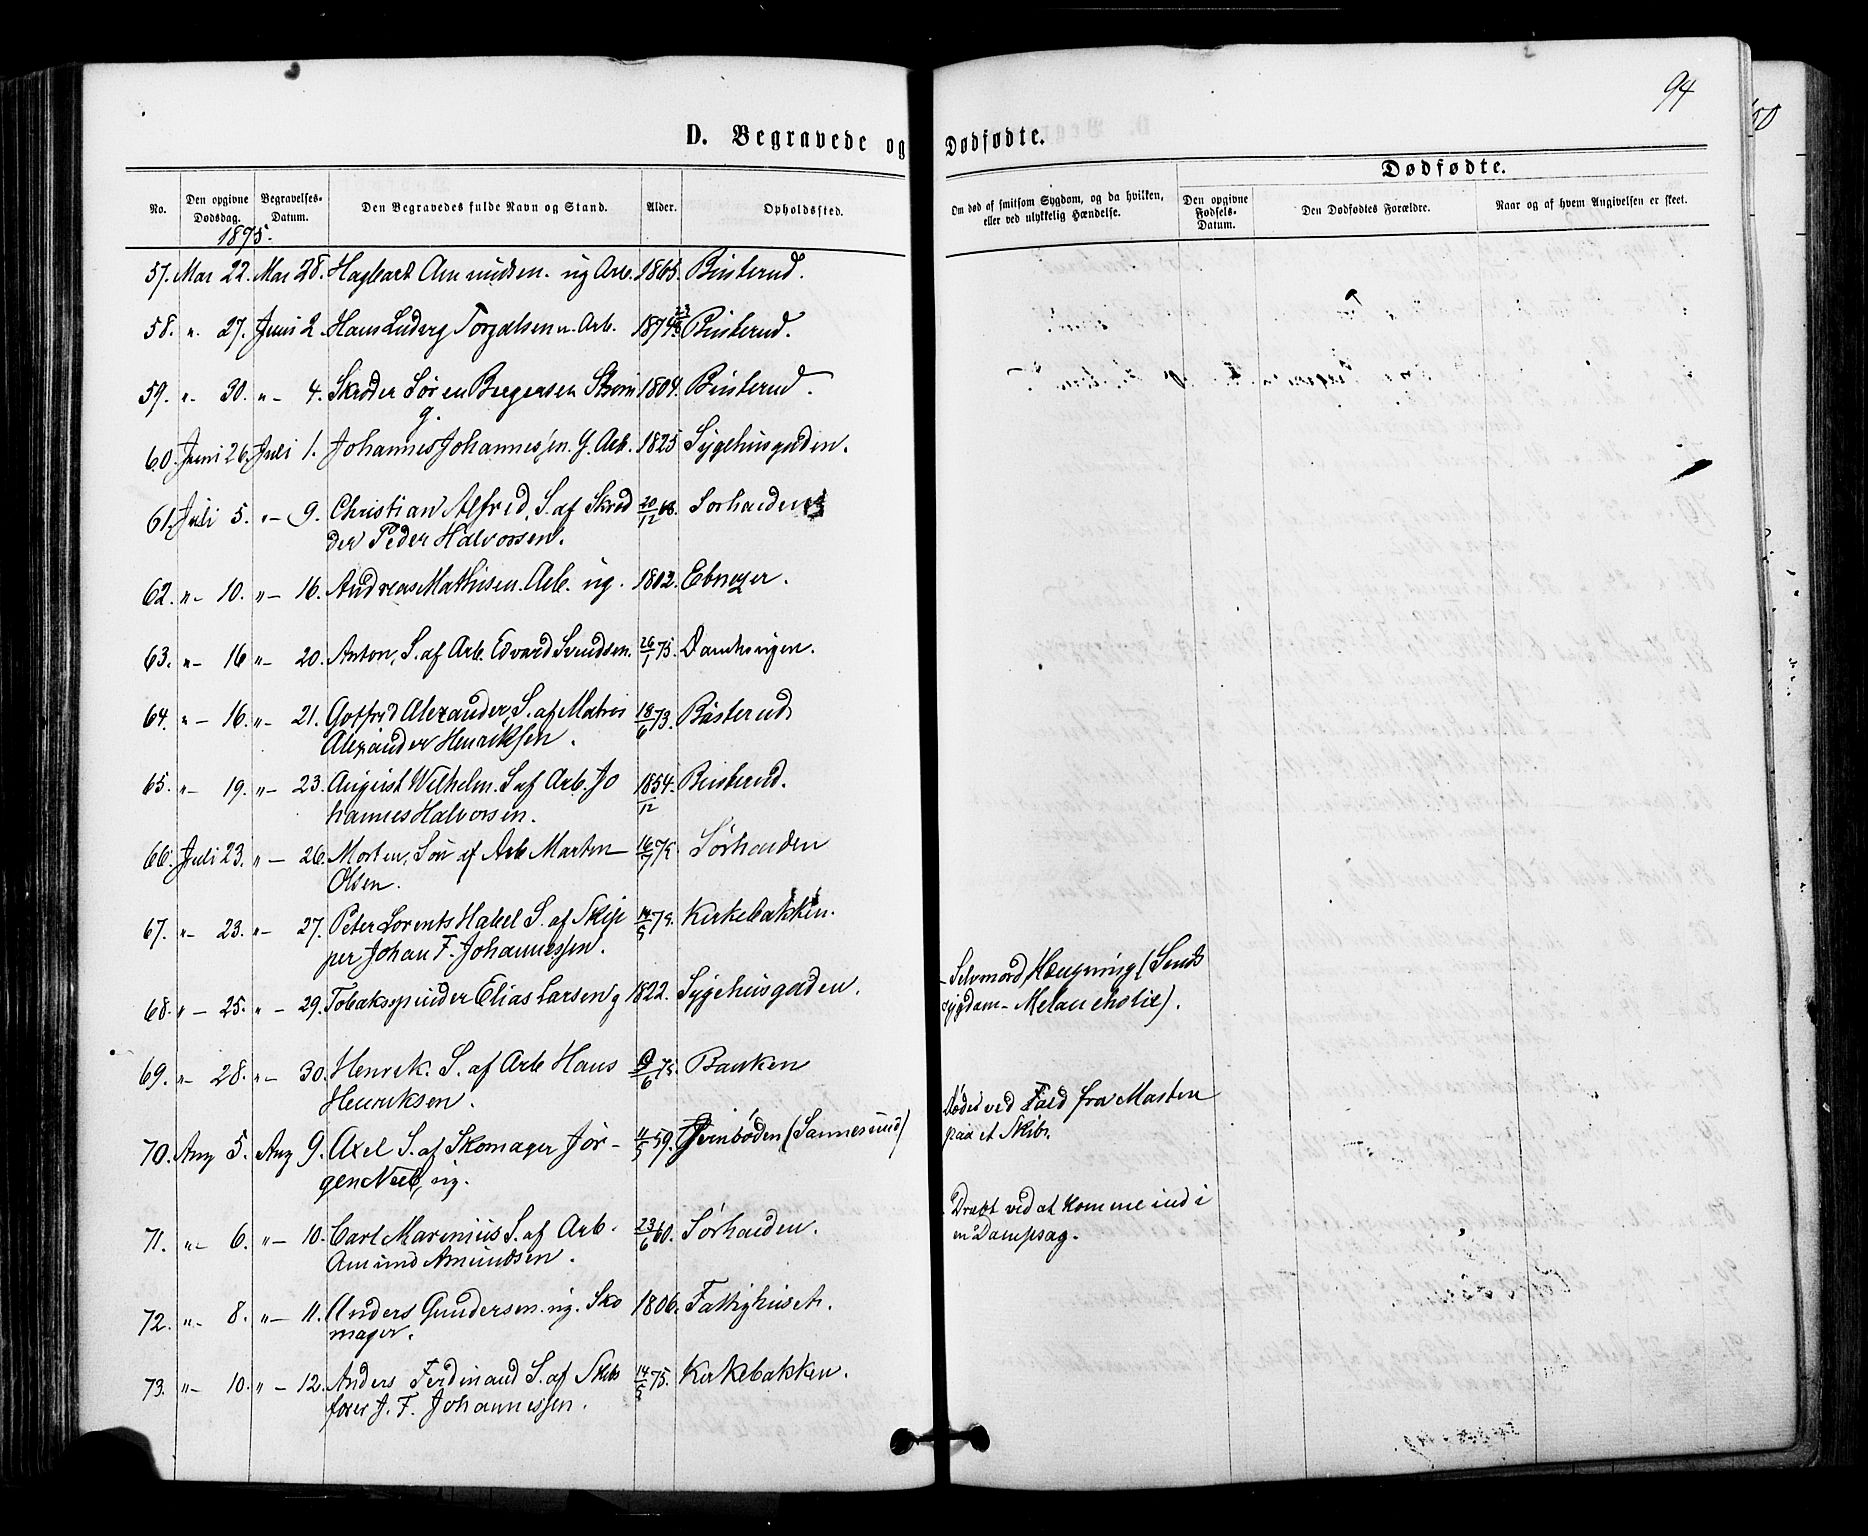 94
D. Begravede og Dødfødte.
Dødfødte.
No. Den opgivne Dødsdag. Begravelses-Datum. Den Begravedes fulde Navn og Stand. Alder. Opholdssted. Om død af smitsom Sygdom, og da hvilken, eller ved ulykkelig Hændelse. Den opgivne Fødsels-Datum. Den Dødfødtes Forældre. Naar og af hvem Angivelsen er skeet.
1875.
57. Mai 22. Mai 28. Hagbart Amundsen. ug Arb. 1865. Binterud.
58. " 27. Juni 2. Hans Ludvig Torgalsen Arb. 1874 Binterud.
59. " 30. " 4. Skrøder Sør en Bergersen Strøm 1804. Binterud.
g.
60. Juni 26. Juli 1. Johannes Johannessen. G. Arb. 1825 Sygehusgaden.
61. Juli 5. " 9. Christian Alfred, S. af Skrød 20/12 68. Sorhaiden
der Peder Halvorsen.
62. " 10. " 16. Andreas Mathisen. Arb. ug. 1802. Ebneyer.
63. " 16 " 20. Anton, S. af Arb. Edvard Svendsen. 26/1 75. Damhvigen.
64. " 16. " 21. Gotfred Alexander, S. af Matros 18/6 73. Binterud
Alexander Henriksen.
65. " 19. " 23. August Vilhelm. S af Arb. Jo 1854. Binterud.
hannes Halvorsen. 12
66. Juli 23. " 26. Morten, Søn af Arb Marten 16/7 75 Sørhaiden
Olsen.
67. " 23. " 27. Peter Lorents Habel S. af Skip 14/5 75. Kirkebakken.
per Johan F. Johannessen.
68. " 25. " 29. Tobakspinder Elias Larsen g 1822. Sygehusgaden. Selvmord Hængning (Sinds
sygdom – Melancholie).
69. " 28. " 30. Henrik. S. af Arb Hans /6 75. Banken
Henriksen.
70. Aug 5. Aug 9. Axel S. af Skomager Jør- 11/5 59. (Sannesund) Døde ved Fald fra Masten
paa et Skib.
gen , ug.
71. " 6. " 10. Carl Marinius S. af Arb. 23/6 60. Sørhaiden. Dræbt ved at komme ind i
en Dampsag.
Amund Amundsen.
72. " 8. " 11. Anders Gundersen. ug. Sko 1806. Fattighuset.
mager.
73. " 10. " 12. Anders Ferdinand S. af Skibs 14/5 75. Kirkebakken.
fører J. F. Johannessen.